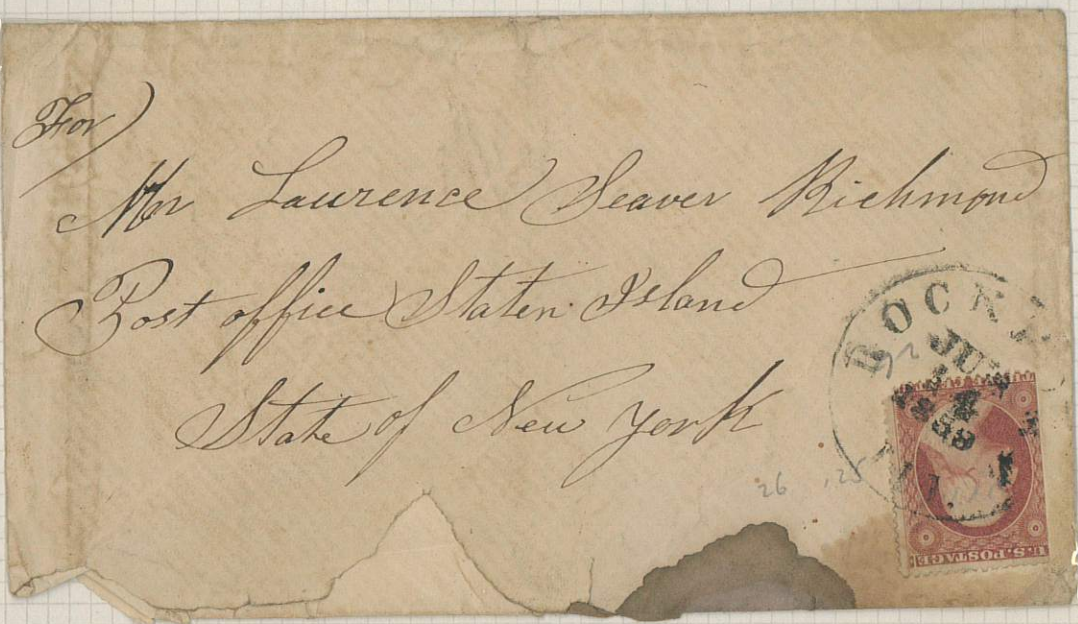 For
Mr Laurence Seaver Richmond
Post office Staten Island
State of New York
26 .25
U.S. POSTAGE